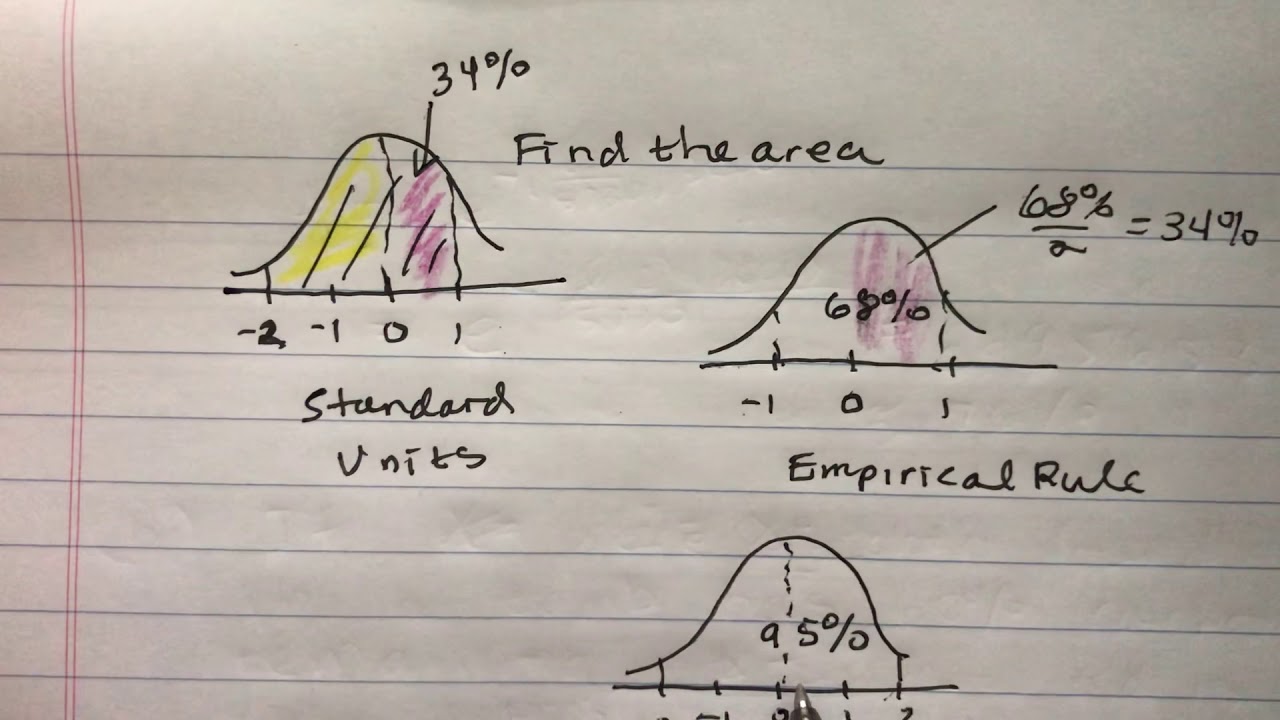 34%
Find the area
68%
2
= 34%
68%
-2 -1 0 1
-1 0 1
Standard
Units
Empirical Rule
95%
-1
1
2